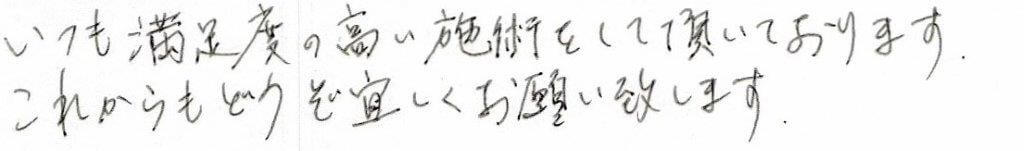 いつも満足度の高い施術をして頂いております.
これからもどうぞ宜しくお願い致します.